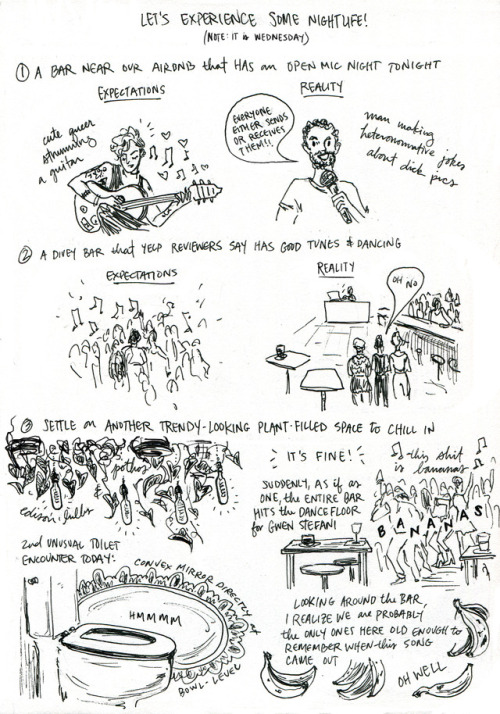 LET'S EXPERIENCE SOME NIGHTLIFE!
(NOTE: IT is WEDNESDAY)
① A BAR NEAR OUR AIRBNB that HAS an OPEN MIC NIGHT TONIGHT
EXPECTATIONS
cute queer
strumming
a guitar
REALITY
EVERYONE
EITHER SENDS
OR RECEIVES
THEM!!
man making
heteronormative jokes
about dick pics
② A DIVEY BAR that YELP REVIEWERS SAY HAS GOOD TUNES & DANCING
EXPECTATIONS
REALITY
OH NO
③ SETTLE on ANOTHER TRENDY-LOOKING PLANT-FILLED SPACE to CHILL IN
pothos
&
edison bulbs
IT'S FINE!
SUDDENLY, AS if as
ONE, the ENTIRE BAR
HITS the DANCEFLOOR
for GWEN STEFANI
this shit
is bananas
BANANAS
2nd UNUSUAL TOILET
ENCOUNTER TODAY:
CONVEX MIRROR DIRECTLY at
BOWL-LEVEL
HMMMM
LOOKING AROUND the BAR,
I REALIZE WE are PROBABLY
the ONLY ONES HERE OLD ENOUGH to
REMEMBER WHEN this SONG
CAME OUT
OH WELL